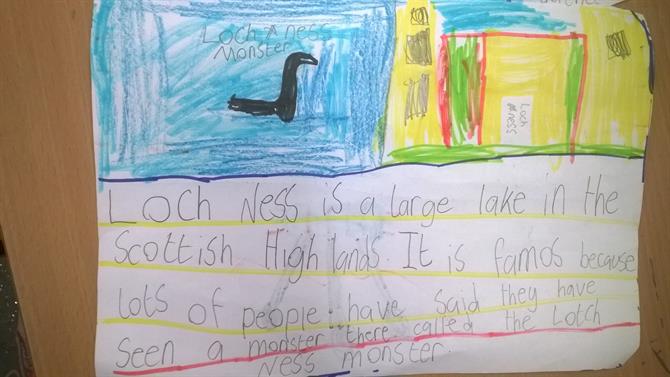 Loch Ness
Monster
Loch
Ness
Loch Ness is a large lake in the
Scottish Highlands. It is famos because
lots of people have said they have
seen a monster there called the Loch
Ness monster.